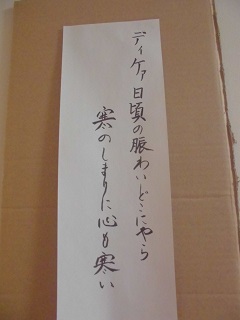 ディケア日頃の賑わいどこにやら
寒のしまりに心も寒い